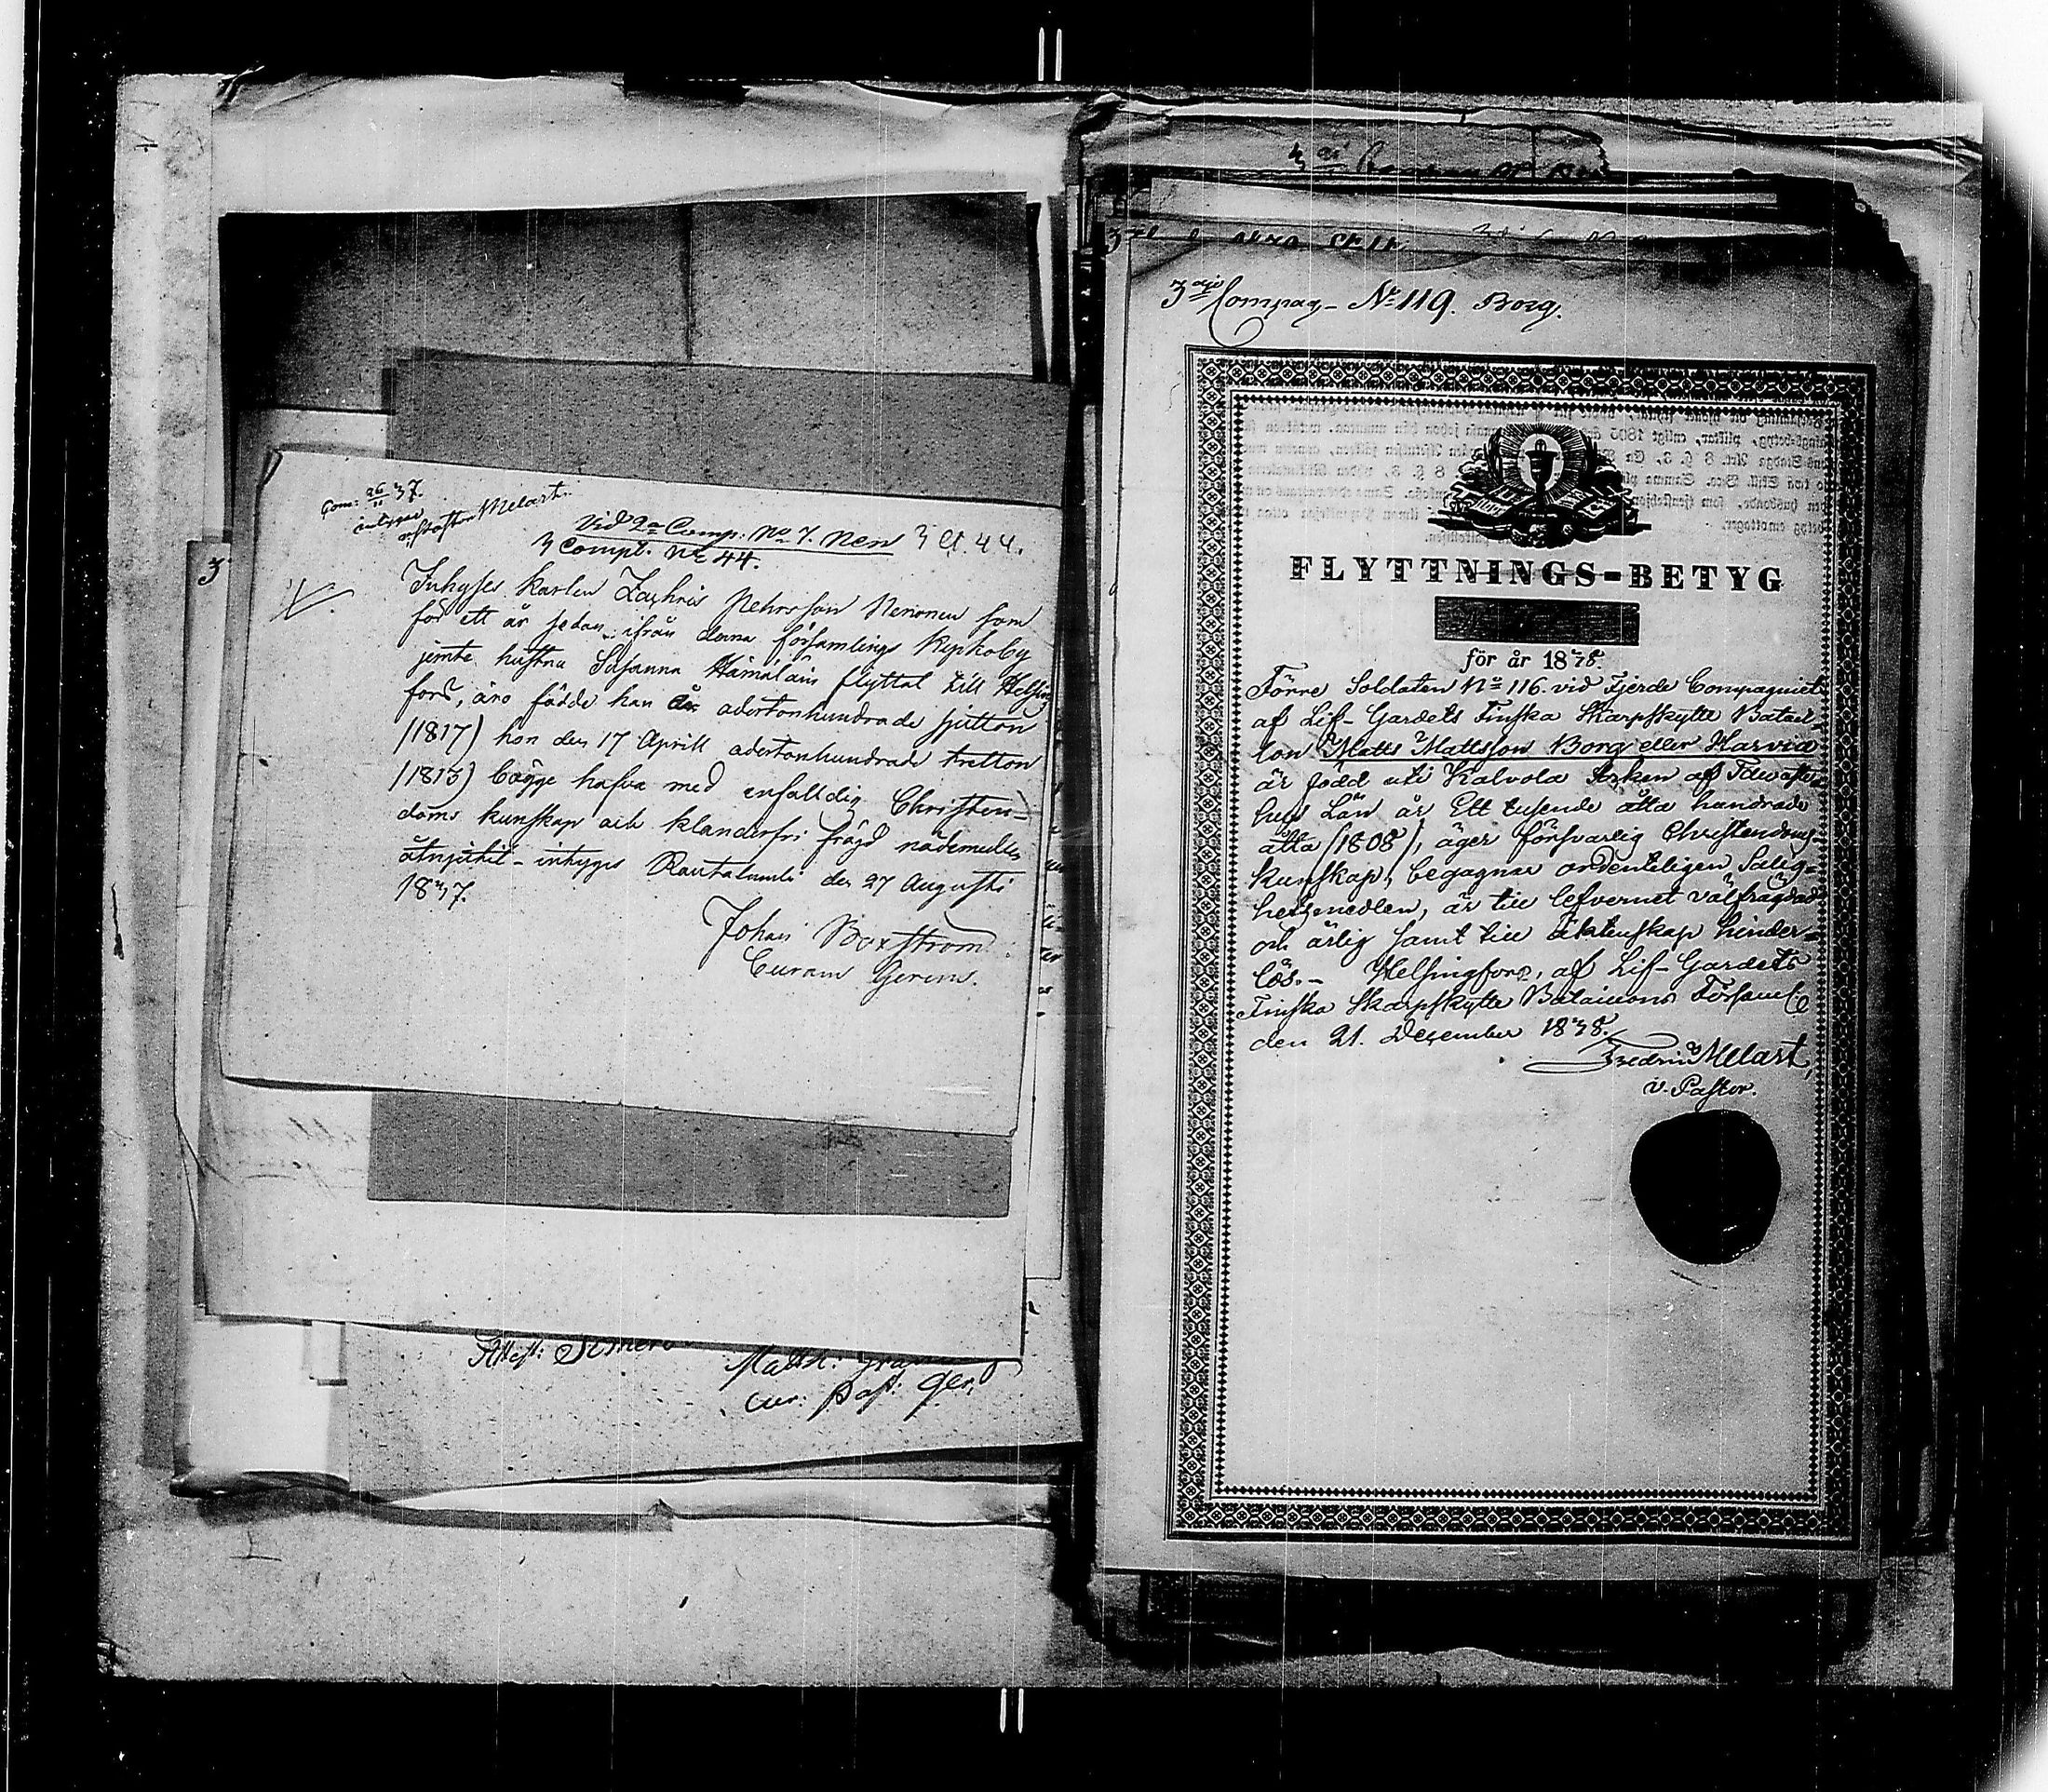 intygar
v. Pastor Melart.
Vid 2a Comp: No 7. Nen 3 C. 44.
3 Compt. No 44.
Inhyses karlen Zachris Pehrsson Nenonen som
för ett år sedan ifrån denna församlings Kipkoby
jemte hustru Susanna Hämäläin flyttat till Helsing
fors, äro födde han år adertonhundrade sjutton
/1817/ hon den 17 Aprill adertonhundrade tretton
/1813/ bägge hafva med enfalldig Christen=
doms kunskap och klanderfri frägd nådemedlen
åtnjutit - intygas Rautalambi den 27 Augusti
1837.
Johan Boxström
Curam Gerens.
Attest:
Matth:
cur: past: ger:
3dje Compag- No 119. Borg.
FLYTTNINGS-BETYG
för år 1838.
Förre Soldaten No 116. vid Fjerde Compagniet
af Lif-Gardets Finska Skarpskytte Batail-
lon Matts Mattsson Borg eller Harvia
är född uti Kalvola Socken af Tawaste-
hus Län år Ett tusende åtta hundrade
åtta /1808/, äger försvarlig Christendoms-
kunskap, begagnar ordenteligen Salig-
hetsmedlen, är till lefvernet välfrägdad
och ärlig samt till äktenskap hinder-
lös. - Helsingfors, af Lif-Gardets
Finska Skarpskytte Bataillons Församl:g
den 21. December 1838.
Fredric Melart,
v. Pastor.